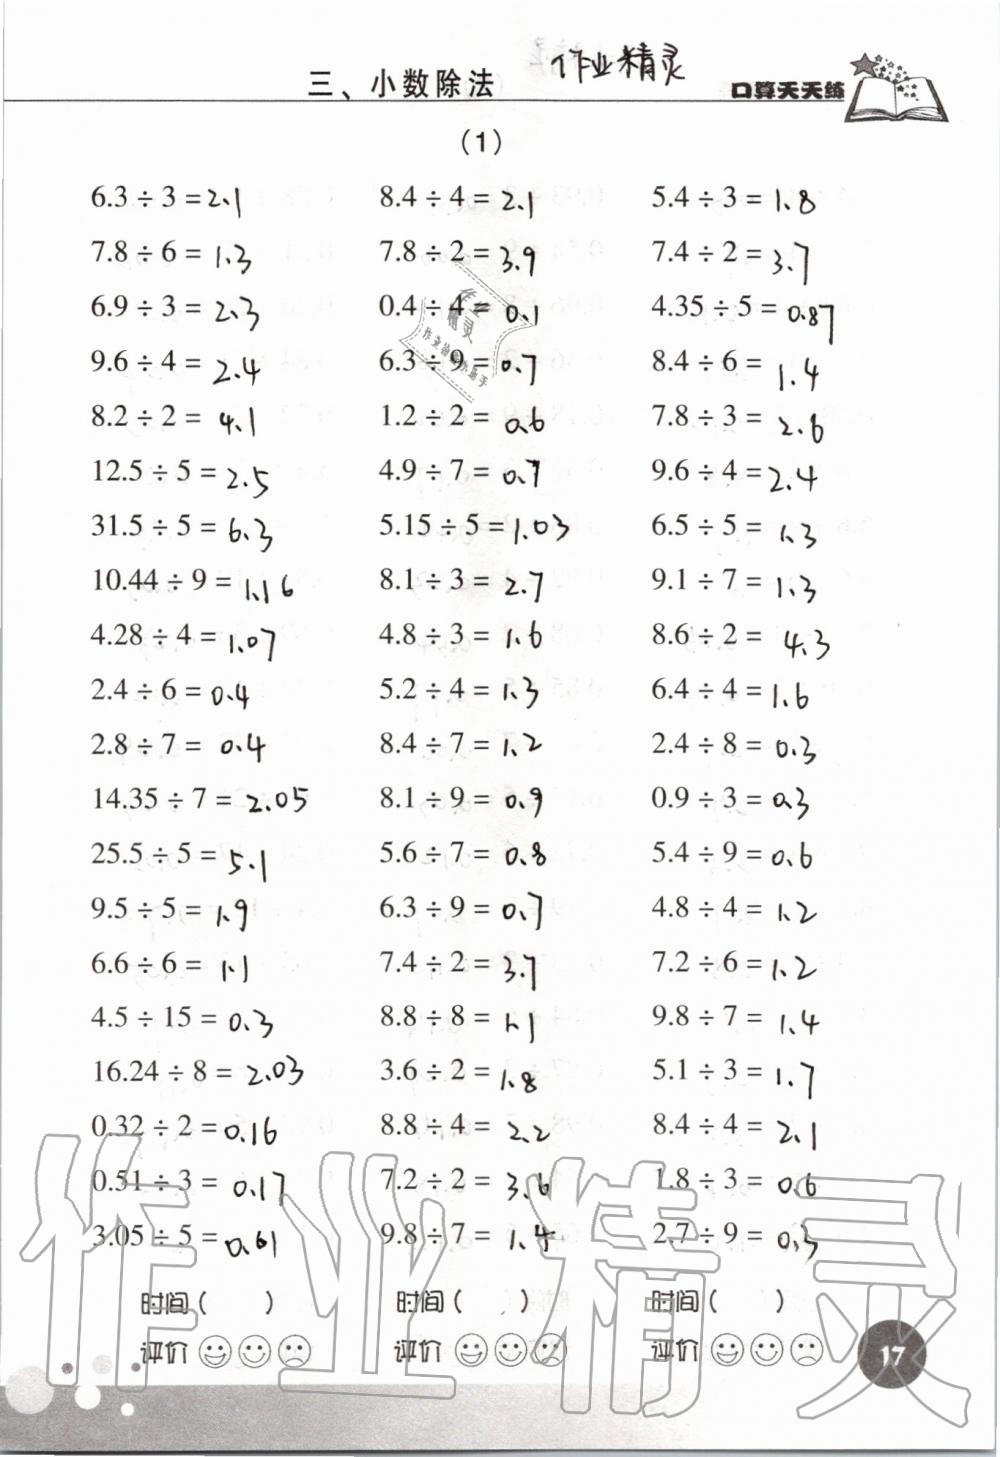 作业精灵
三、小数除法
口算天天练
(1)
6.3÷3=2.1 8.4÷4=2.1 5.4÷3=1.8
7.8÷6=1.3 7.8÷2=3.9 7.4÷2=3.7
6.9÷3=2.3 0.4÷4=0.1 4.35÷5=0.87
9.6÷4=2.4 6.3÷9=0.7 8.4÷6=1.4
8.2÷2=4.1 1.2÷2=0.6 7.8÷3=2.6
12.5÷5=2.5 4.9÷7=0.7 9.6÷4=2.4
31.5÷5=6.3 5.15÷5=1.03 6.5÷5=1.3
10.44÷9=1.16 8.1÷3=2.7 9.1÷7=1.3
4.28÷4=1.07 4.8÷3=1.6 8.6÷2=4.3
2.4÷6=0.4 5.2÷4=1.3 6.4÷4=1.6
2.8÷7=0.4 8.4÷7=1.2 2.4÷8=0.3
14.35÷7=2.05 8.1÷9=0.9 0.9÷3=0.3
25.5÷5=5.1 5.6÷7=0.8 5.4÷9=0.6
9.5÷5=1.9 6.3÷9=0.7 4.8÷4=1.2
6.6÷6=1.1 7.4÷2=3.7 7.2÷6=1.2
4.5÷15=0.3 8.8÷8=1.1 9.8÷7=1.4
16.24÷8=2.03 3.6÷2=1.8 5.1÷3=1.7
0.32÷2=0.16 8.8÷4=2.2 8.4÷4=2.1
0.51÷3=0.17 7.2÷2=3.6 1.8÷3=0.6
3.05÷5=0.61 9.8÷7=1.4 2.7÷9=0.3
时间( ) 时间( ) 时间( )
评价 评价 评价
17
作业精灵